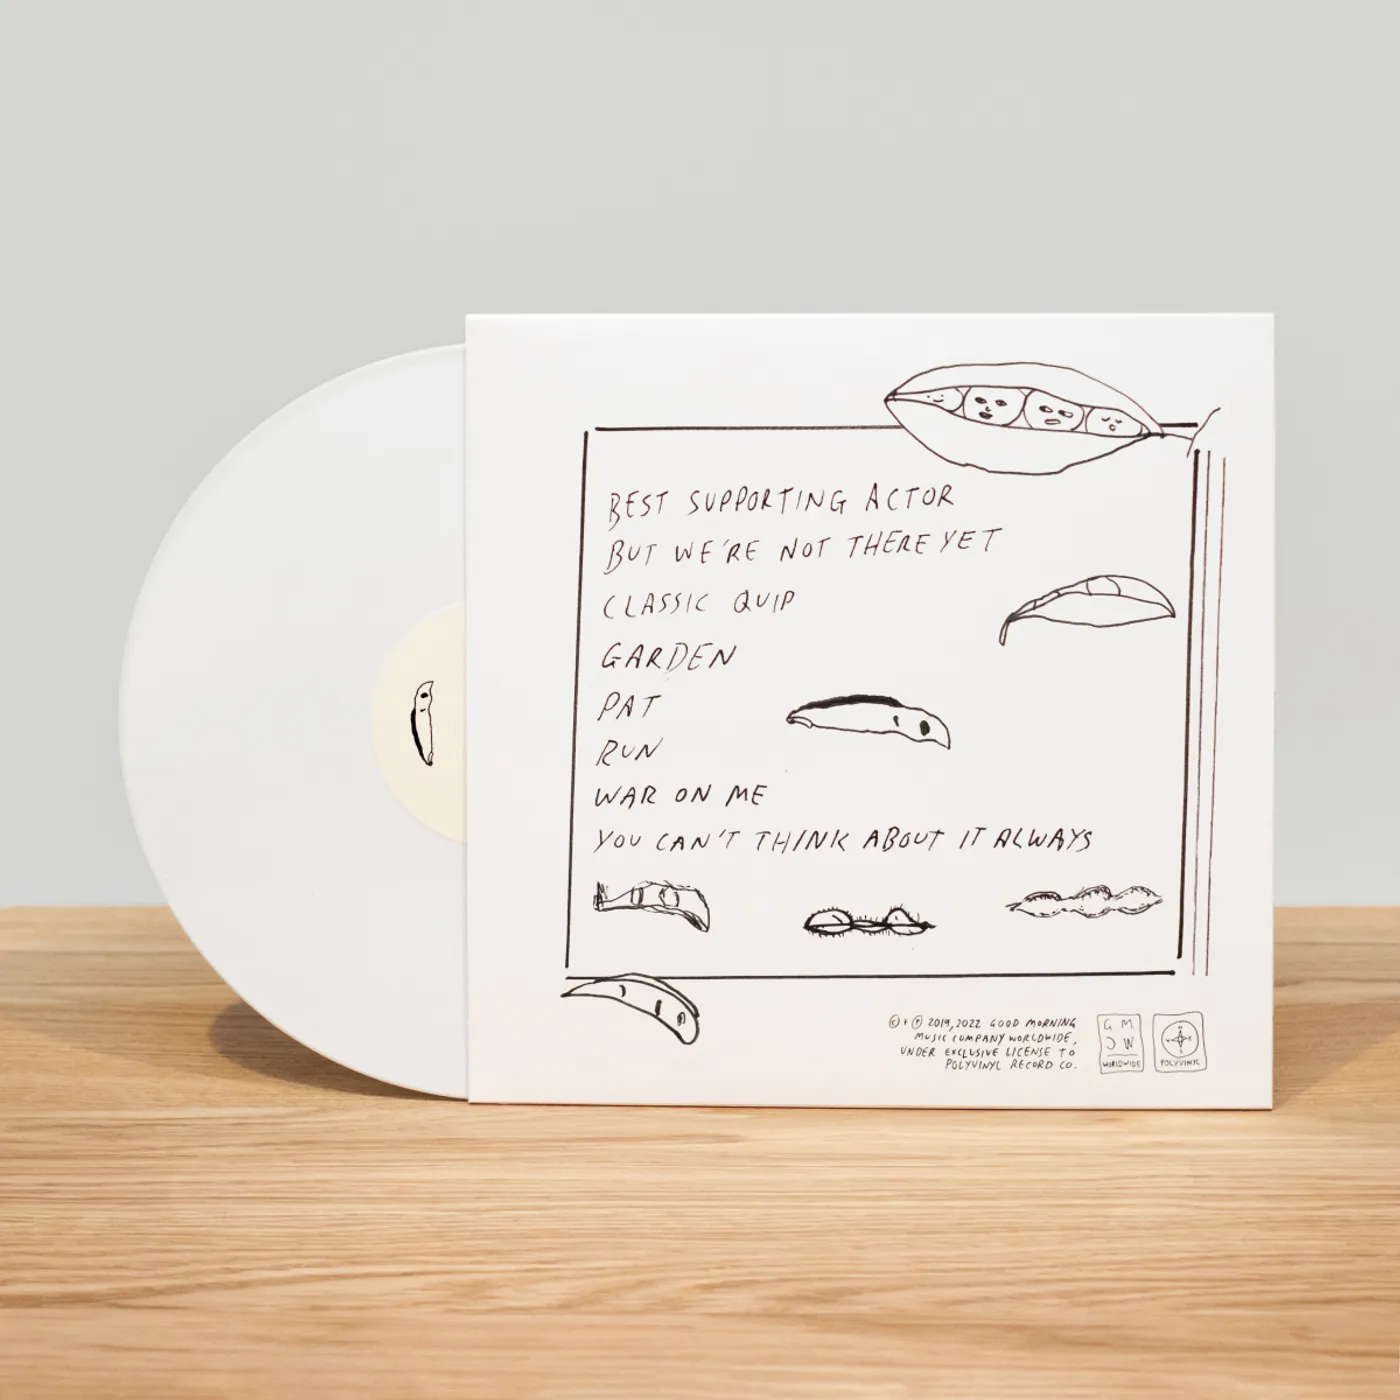 BEST SUPPORTING ACTOR
BUT WE'RE NOT THERE YET
CLASSIC QUIP
GARDEN
PAT
RUN
WAR ON ME
YOU CAN'T THINK ABOUT IT ALWAYS
© + ℗ 2019, 2022 GOOD MORNING
MUSIC COMPANY WORLDWIDE,
UNDER EXCLUSIVE LICENSE TO
POLYVINYL RECORD CO.
G M
C W
WORLDWIDE
N
W E
S
POLYVINYL